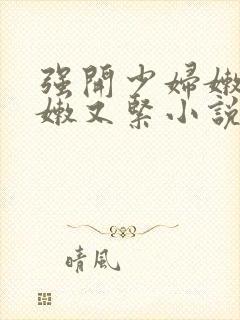 强開少婦嫩
嫩又緊小說
晴風